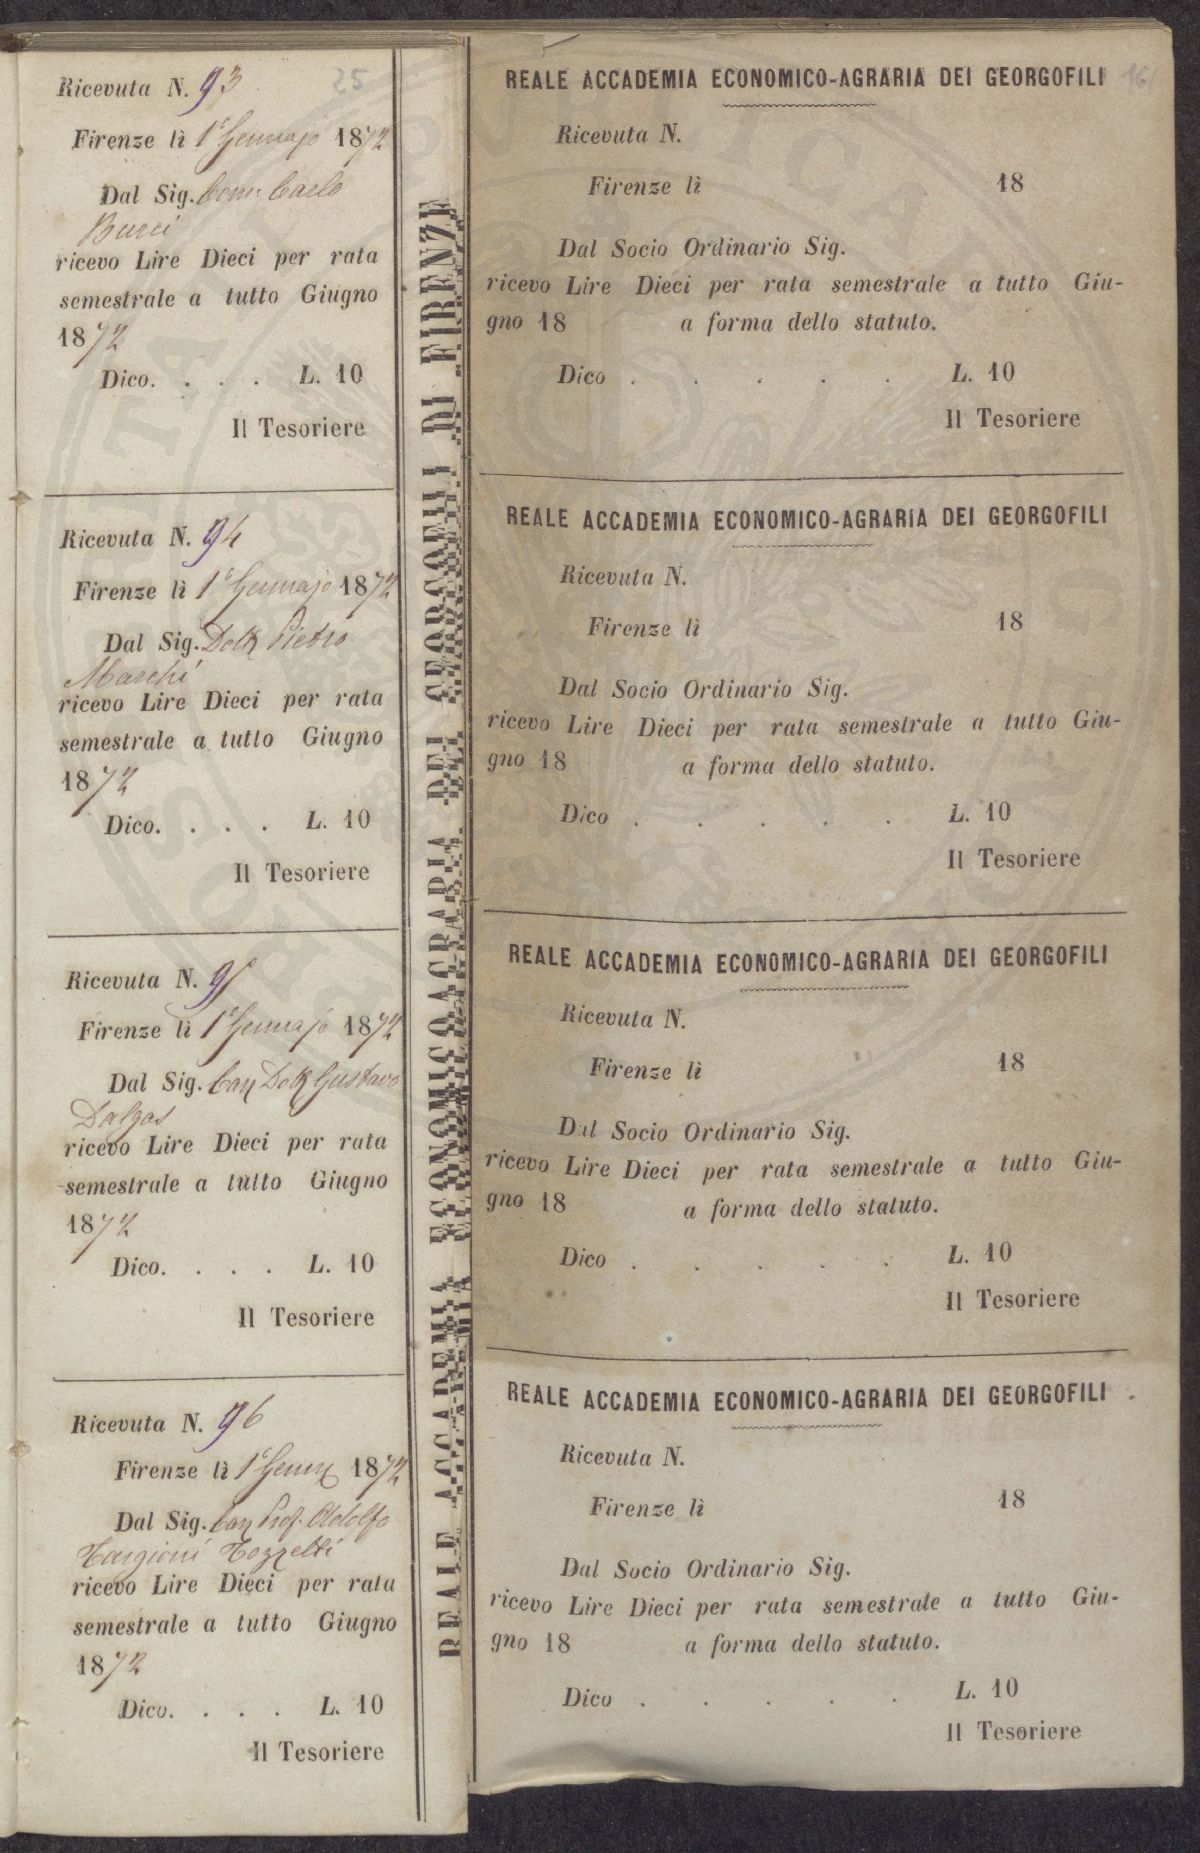 Ricevuta N. 93
25
Firenze lì 1° Gennajo 1872
Dal Sig. Com. Carlo
Burci
ricevo Lire Dieci per rata
semestrale a tutto Giugno
1872
Dico. . . . L. 10
Il Tesoriere
Ricevuta N. 94
Firenze lì 1° Gennajo 1872
Dal Sig. Dott. Pietro
Marchi
ricevo Lire Dieci per rata
semestrale a tutto Giugno
1872
Dico. . . . L. 10
Il Tesoriere
Ricevuta N. 95
Firenze lì 1° Gennajo 1872
Dal Sig. Cav. Dott. Gustavo
Dalgas
ricevo Lire Dieci per rata
semestrale a tutto Giugno
1872
Dico. . . . L. 10
Il Tesoriere
Ricevuta N. 96
Firenze lì 1° Genn. 1872
Dal Sig. Cav. Prof. Adolfo
Targioni Tozzetti
ricevo Lire Dieci per rata
semestrale a tutto Giugno
1872
Dico. . . . L. 10
Il Tesoriere
REALE ACCADEMIA ECONOMICO AGRARIA DEI GEORGOFILI DI FIRENZE
REALE ACCADEMIA ECONOMICO-AGRARIA DEI GEORGOFILI
Ricevuta N.
Firenze lì 18
Dal Socio Ordinario Sig.
ricevo Lire Dieci per rata semestrale a tutto Giu-
gno 18 a forma dello statuto.
Dico . . . . . L. 10
Il Tesoriere
REALE ACCADEMIA ECONOMICO-AGRARIA DEI GEORGOFILI
Ricevuta N.
Firenze lì 18
Dal Socio Ordinario Sig.
ricevo Lire Dieci per rata semestrale a tutto Giu-
gno 18 a forma dello statuto.
Dico . . . . . L. 10
Il Tesoriere
REALE ACCADEMIA ECONOMICO-AGRARIA DEI GEORGOFILI
Ricevuta N.
Firenze lì 18
Dal Socio Ordinario Sig.
ricevo Lire Dieci per rata semestrale a tutto Giu-
gno 18 a forma dello statuto.
Dico . . . . . L. 10
Il Tesoriere
REALE ACCADEMIA ECONOMICO-AGRARIA DEI GEORGOFILI
Ricevuta N.
Firenze lì 18
Dal Socio Ordinario Sig.
ricevo Lire Dieci per rata semestrale a tutto Giu-
gno 18 a forma dello statuto.
Dico . . . . . L. 10
Il Tesoriere